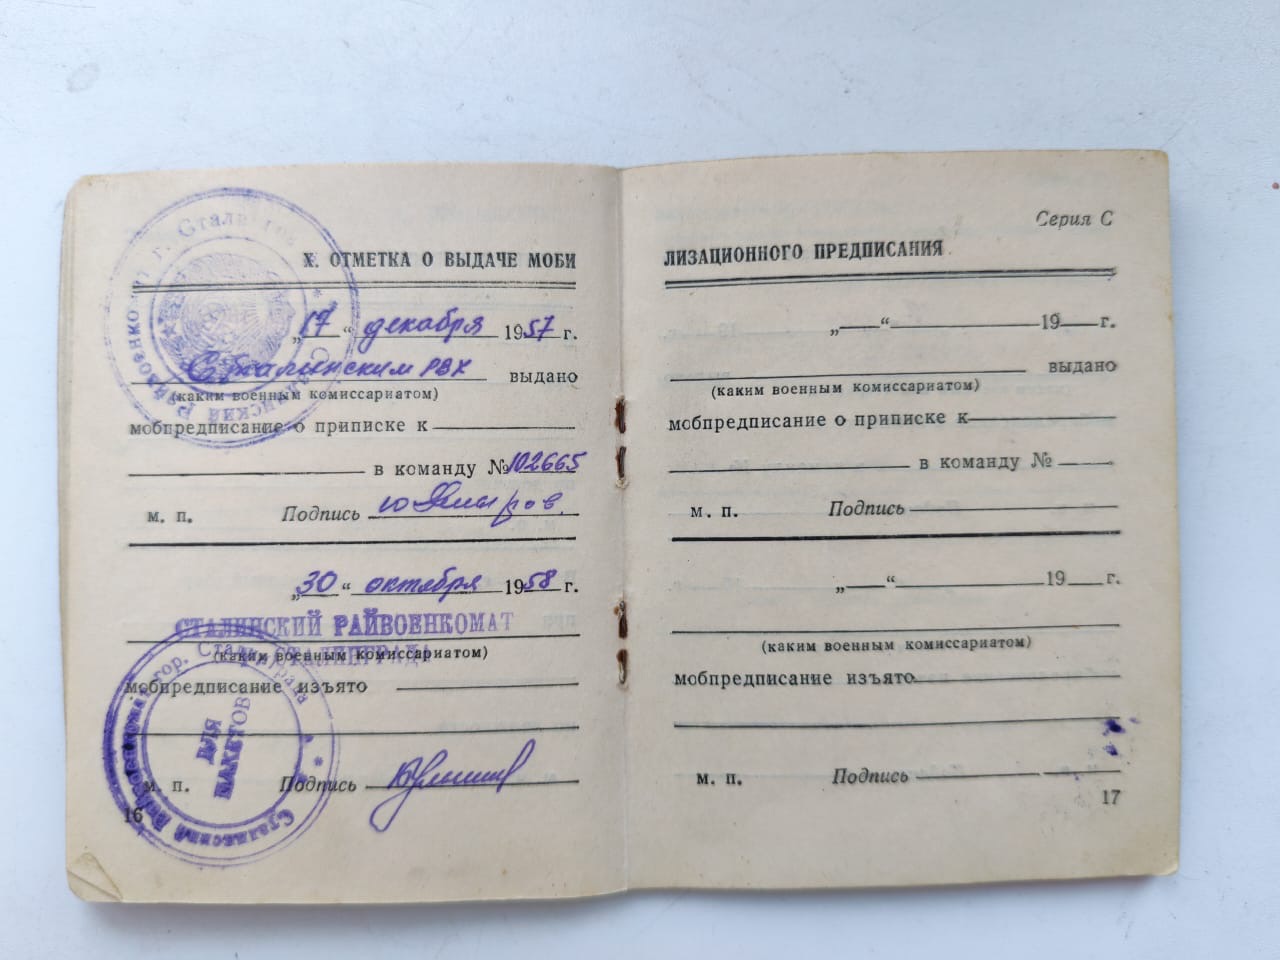 X. ОТМЕТКА О ВЫДАЧЕ МОБИ
„17“ декабря 1957 г.
Сталинским РВК выдано
(каким военным комиссариатом)
мобпредписание о приписке к
в команду № 102665
м. п. Подпись
„30“ октября 1958 г.
СТАЛИНСКИЙ РАЙВОЕНКОМАТ
СТАЛИНГРАДА
(каким военным комиссариатом)
мобпредписание изъято
ДЛЯ
ПАКЕТОВ
м. п. Подпись
16
Серия С
ЛИЗАЦИОННОГО ПРЕДПИСАНИЯ
„ “ 19 г.
выдано
(каким военным комиссариатом)
мобпредписание о приписке к
в команду №
м. п. Подпись
„ “ 19 г.
(каким военным комиссариатом)
мобпредписание изъято
м. п. Подпись
17